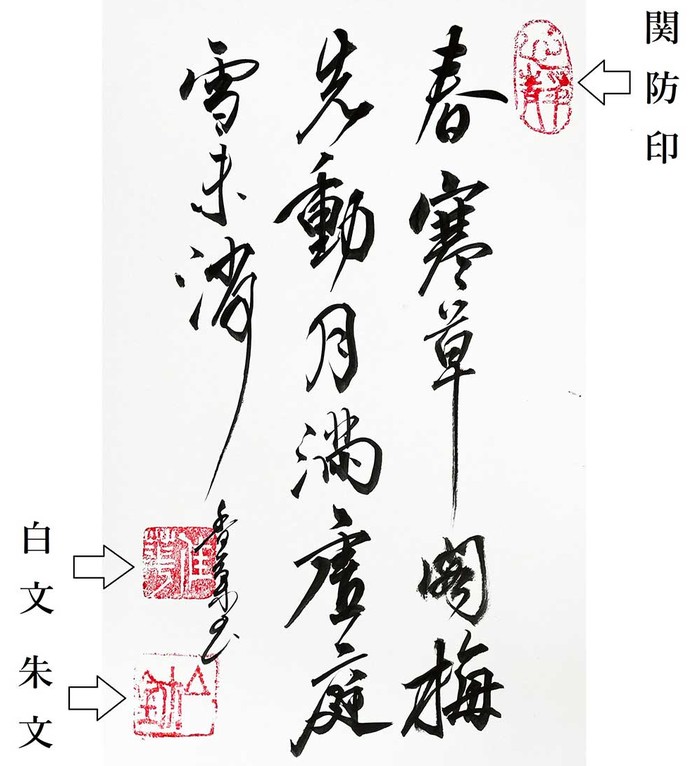 関防印
春寒草閣梅
先動月満虚庭
雪未消
白文
朱文